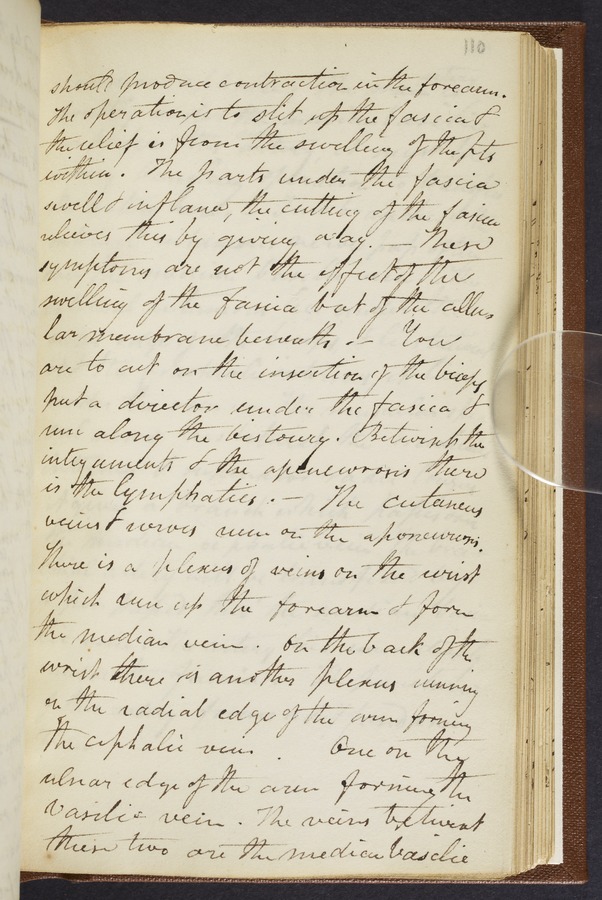 110
should produce contraction in the forearm.
The operation is to slit up the fascia &
the relief is from the swelling of the pts
within. The parts under the fascia
swell & inflame, the cutting of the fascia
relieves this by giving way. — These
symptoms are not the effect of the
swelling of the fascia but of the cellu
lar membrane beneath. — You
are to cut on the insertion of the biceps
put a director under the fascia &
run along the bistoury. Betwixt the
integuments & the aponeurosis there
is the lymphatics. — The cutaneus
veins & nerves run on the aponeurosis.
There is a plexus of veins on the wrist
which run up the forearm & form
the median vein. On the back of the
wrist there is another plexus running
on the radial edge of the arm forming
the cephalic vein. One on the
ulnar edge of the arm forming the
Vasilic vein. The veins betwixt
these two are the median basilic